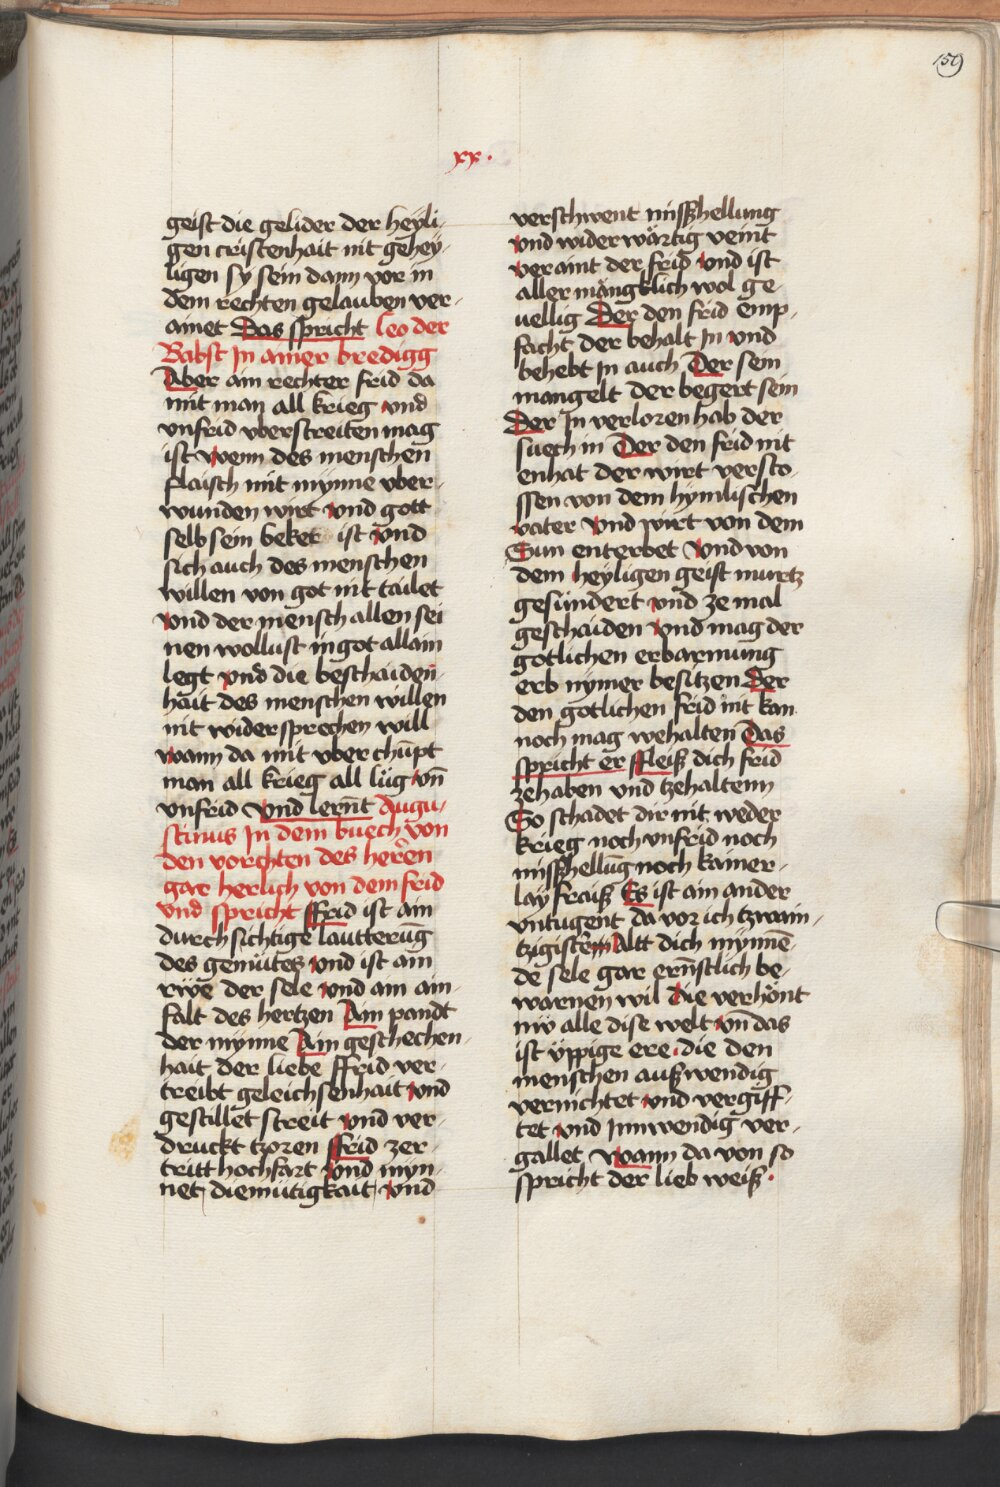 159
xx.
geist die gelider der heyli-
gen cristenhait nit gehey-
ligen sy sein dann vor in
dem rechten gelauben ver-
ainet Das spricht Leo der
Babst In ainer bredigg
Aber ain rechter frid da
mit man all krieg vnd
vnfrid vberstreiten mag
ist wenn des menschen
flaisch mit mynne vber-
wunden wirt vnd gott
selb sein beket ist vnd
sich auch des menschen
willen von got nit tailet
vnd der mensch allen sei
nen wollust in got allain
legt vnd die beschaiden-
hait des menschen willen
nit widersprechen will
wann da mit vberchūpt
man all krieg all lüg vn̄
vnfrid Vnd lernt Augu-
stinus In dem buech von
den vorchten des heren
gar herlich von dem frid
vnd spricht ffrid ist ain
durchsichtige lautterūg
des gemütes vnd ist ain
rwe der sele vnd ain ain-
falt des hertzen Ain pandt
der mynne Ain geschechen-
hait der liebe ffrid ver-
treibt geleichsenhait vnd
gestillet streit vnd ver-
druckt tzoren ffrid zer-
tritt hochfart vnd myn-
net diemütigkait vnd
verschwent misshellung
vnd widerwärtig veint
veraint der frid vnd ist
aller mängklich wol ge
uellig Der den frid emp-
facht der behalt In vnd
behebt In auch Der sein
mangelt der begert sein
Der In verloren hab der
suech in Der den frid nit
enhat der wirt versto-
ssen von dem hymlischen
vater Vnd wirt von dem
Sun enterbet Vnd von
dem heyligen geist wurtz
gesündert vnd ze mal
geschaiden vnd mag der
gotlichen erbarmung
erb nymer besitzen Der
den götlichen frid nit kan
noch mag wehalten Das
spricht er ffleiß dich frid
zehaben vnd tzehaltenn
So schadet dir nit weder
krieg noch vnfrid noch
misshellūg noch kainer-
lay fraiß Es ist ain ander
vntugent da vor ich tzwain-
tzigisten Alt dich mynnē-
de sele gar ernstlich be-
warnen wil die verhönt
nw alle dise welt vn̄ das
ist üppige ere. die den
menschen außwendig
vernichtet vnd vergiff-
tet vnd Innwendig ver-
gallet wann da von so
spricht der lieb weiß.